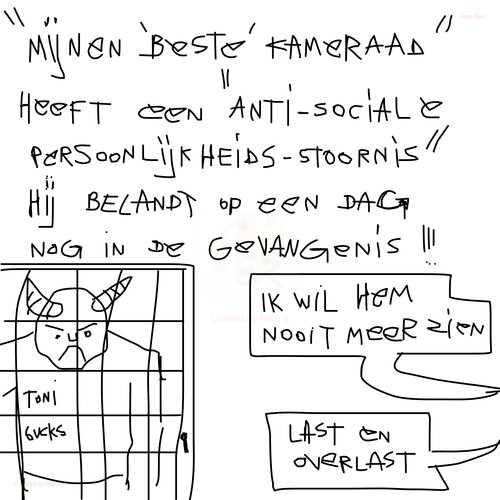 "MIJNEN 'BESTE' KAMERAAD"
HEEFT EEN "ANTI-SOCIALE
PERSOONLIJKHEIDS-STOORNIS"
HIJ BELANDT OP EEN DAG
NOG IN DE GEVANGENIS !!!
IK WIL HEM
NOOIT MEER ZIEN
TONI
SUCKS
LAST EN
OVERLAST